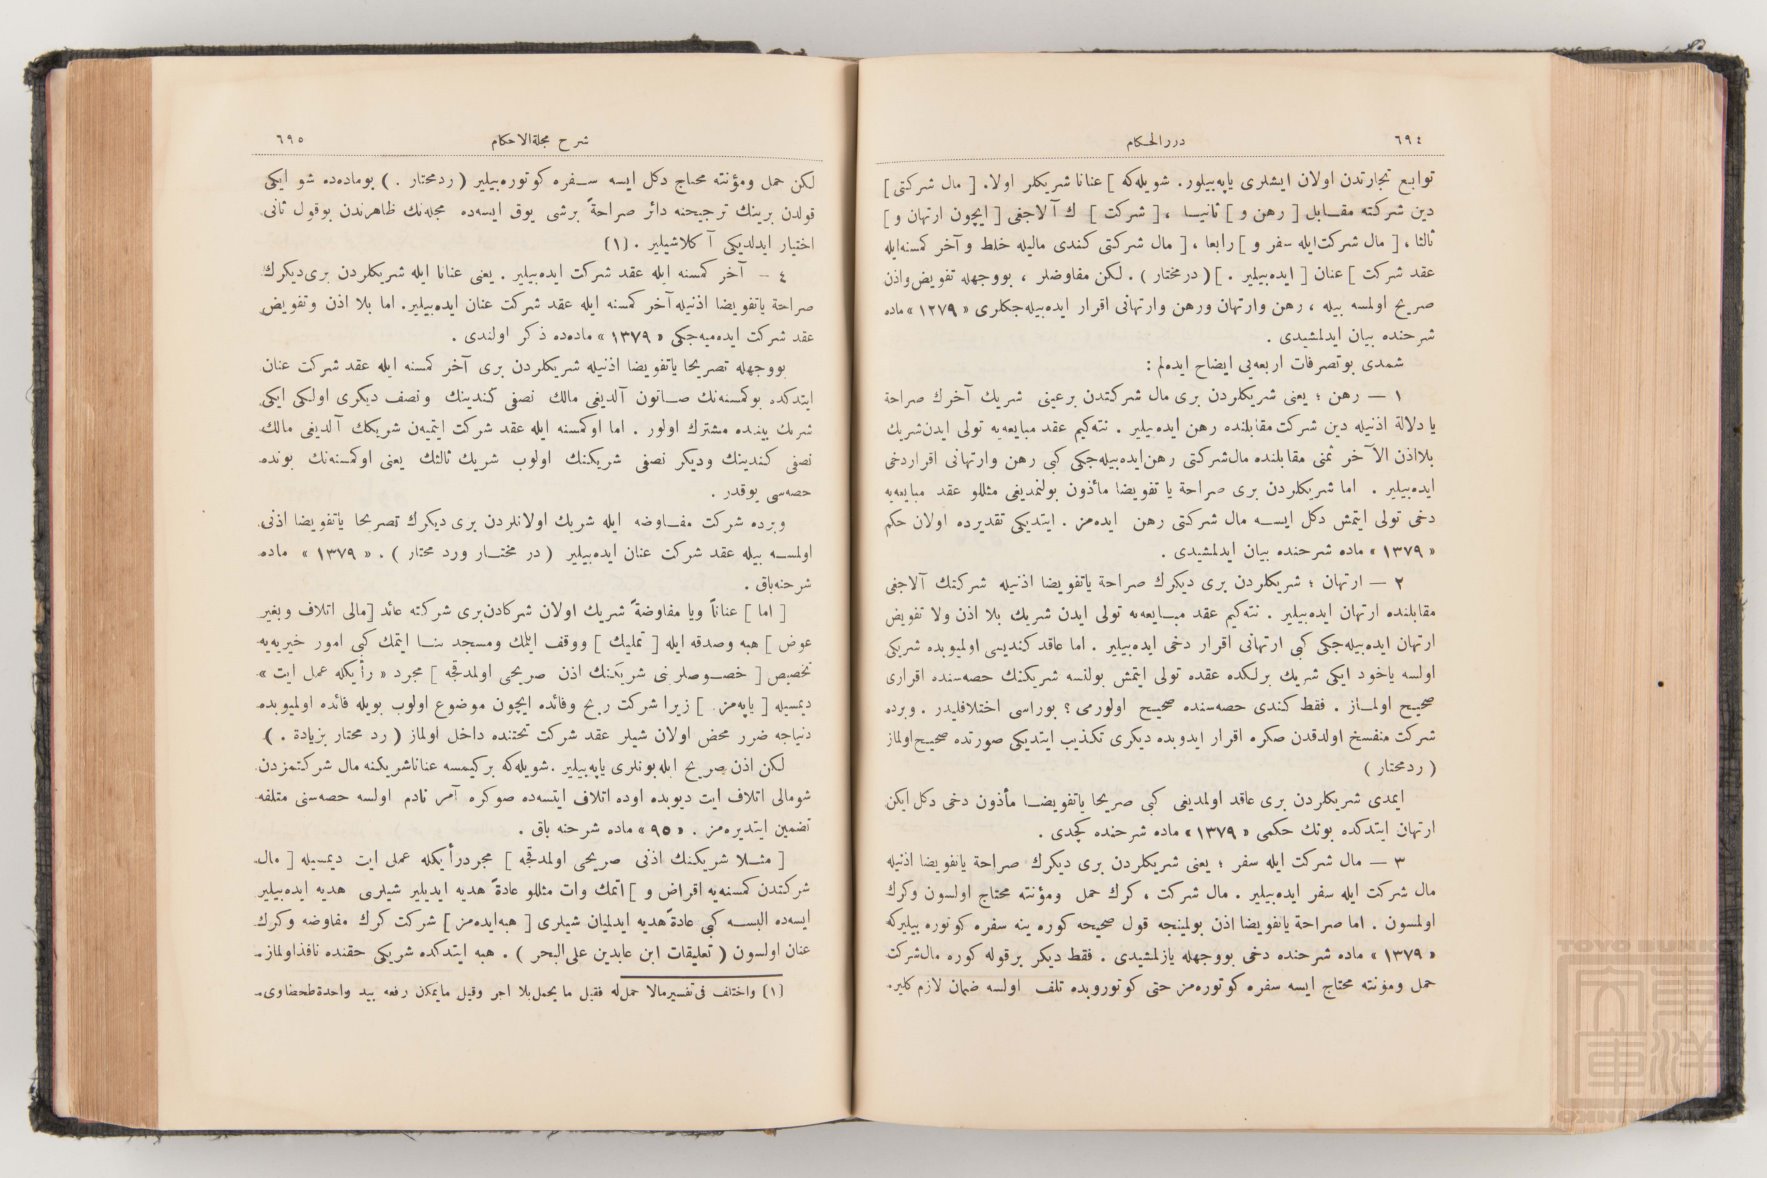 ٦٩٤
دررالحكام
توابع تجارتدن اولان ايشلرى ياپه‌بيلور. شويله‌كه ] عنانا شريكلر اولا. [ مال شركتى ]
دين شركته مقابل [ رهن و ] ثانيا ، [ شركت ] ك آلاجغى [ ايچون ارتهان و ]
ثالثا ، [ مال شركت‌ايله سفر و ] رابعا ، [ مال شركتى كندى ماليله خلط و آخر كمسنه‌ايله
عقد شركت ] عنان [ ايده‌بيلير . ] ( درمختار ) . لكن مفاوضلر ، بووجهله تفويض‌واذن
صريح اولمسه بيله ، رهن وارتهان ورهن وارتهانى اقرار ايده‌بيله‌جكلرى « ١٣٧٩ » ماده
شرحنده بيان ايدلمشيدى .
شمدى بو تصرفات اربعه‌يى ايضاح ايده‌لم :
١ — رهن ؛ يعنى شريكلردن برى مال شركتدن برعينى شريك آخرك صراحة
يا دلالة اذنيله دين شركت مقابلنده رهن ايده‌بيلير . نته‌كيم عقد مبايعه‌يه تولى ايدن‌شريك
بلااذن الآخر ثمنى مقابلنده مال‌شركتى رهن‌ايده‌بيله‌جكى كبى رهن وارتهانى اقراردخى
ايده‌بيلير . اما شريكلردن برى صراحة يا تفويضا مأذون بولنمديغى مثللو عقد مبايعه‌يه
دخى تولى ايتمش دكل ايسه مال شركتى رهن ايده‌مز . ايتديكى تقديرده اولان حكم
« ١٣٧٩ » ماده شرحنده بيان ايدلمشيدى .
٢ — ارتهان ؛ شريكلردن برى ديكرك صراحة ياتفويضا اذنيله شركتك آلاجغى
مقابلنده ارتهان ايده‌بيلير . نته‌كيم عقد مبايعه‌يه تولى ايدن شريك بلا اذن ولا تفويض
ارتهان ايده‌بيله‌جكى كبى ارتهانى اقرار دخى ايده‌بيلير . اما عاقد كنديسى اولميوبده شريكى
اولسه ياخود ايكى شريك برلكده عقده تولى ايتمش بولنسه شريكنك حصه‌سنده اقرارى
صحيح اولماز . فقط كندى حصه‌سنده صحيح اولورمى ؟ بوراسى اختلافليدر . وبرده
شركت منفسخ اولدقدن صكره اقرار ايدوبده ديكرى تكذيب ايتديكى صورتده صحيح‌اولماز
( ردمحتار )
ايمدى شريكلردن برى عاقد اولمديغى كبى صريحا ياتفويضا مأذون دخى دكل ايكن
ارتهان ايتدكده بونك حكمى « ١٣٧٩ » ماده شرحنده كچدى .
٣ — مال شركت ايله سفر ؛ يعنى شريكلردن برى ديكرك صراحة ياتفويضا اذنيله
مال شركت ايله سفر ايده‌بيلير . مال شركت ، كرك حمل ومؤنته محتاج اولسون وكرك
اولمسون . اما صراحة ياتفويضا اذن بولمينجه قول صحيحه كوره ينه سفره كوتوره بيليركه
« ١٣٧٩ » ماده شرحنده دخى بووجهله يازلمشيدى . فقط ديكر برقوله كوره مال‌شركت
حمل ومؤنته محتاج ايسه سفره كوتوره‌مز حتى كوتوروبده تلف اولسه ضمان لازم كلير.
شرح مجلةالاحكام
٦٩٥
لكن حمل ومؤنته محتاج دكل ايسه سفره كوتوره‌بيلير ( ردمحتار . ) بوماده‌ده شو ايكى
قولدن برينك ترجيحنه دائر صراحةً برشى يوق ايسه‌ده مجله‌نك ظاهرندن بوقول ثانى
اختيار ايدلديكى آكلاشيلير . (١)
٤ — آخر كمسنه ايله عقد شركت ايده‌بيلير . يعنى عنانا ايله شريكلردن برى‌ديكرك
صراحة ياتفويضا اذنيله آخر كمسنه ايله عقد شركت عنان ايده‌بيلير. اما بلا اذن وتفويض
عقد شركت ايده‌ميه‌جكى « ١٣٧٩ » ماده‌ده ذكر اولندى .
بووجهله تصريحا ياتفويضا اذنيله شريكلردن برى آخر كمسنه ايله عقد شركت عنان
ايتدكده بوكمسنه‌نك صاتون آلديغى مالك نصفى كندينك ونصف ديكرى اولكى ايكى
شريك بيننده مشترك اولور . اما اوكمسنه ايله عقد شركت ايتميه‌ن شريكك آلديغى مالك
نصفى كندينك وديكر نصفى شريكنك اولوب شريك ثالثك يعنى اوكمسنه‌نك بونده
حصه‌سى يوقدر .
وبرده شركت مفاوضه ايله شريك اولانلردن برى ديكرك تصريحا ياتفويضا اذنى
اولمسه بيله عقد شركت عنان ايده‌بيلير ( در مختار ورد محتار ) . « ١٣٧٩ » ماده
شرحنه‌باق .
[ اما ] عناناً ويا مفاوضةً شريك اولان شركادن‌برى شركته عائد [مالى اتلاف وبغير
عوض ] هبه وصدقه ايله [ تمليك ] ووقف ايتمك ومسجد بنا ايتمك كبى امور خيريه‌يه
تخصيص [ خصوصلرنى شريكنك اذن صريحى اولمدقجه ] مجرد « رأيكله عمل ايت »
ديمسيله [ ياپه‌مز. ] زيرا شركت ربح وفائده ايچون موضوع اولوب بويله فائده اولميوبده
دنياجه ضرر محض اولان شيلر عقد شركت تحتنده داخل اولماز ( رد محتار بزيادة . )
لكن اذن صريح ايله‌بونلرى ياپه‌بيلير .شويله‌كه بركيمسه عناناشريكنه مال شركتمزدن
شومالى اتلاف ايت ديوبده اوده اتلاف ايتسه‌ده صوكره آمر نادم اولسه حصه‌سنى متلفه
تضمين ايتديره‌مز . « ٩٥ » ماده شرحنه باق .
[ مثلا شريكنك اذنى صريحى اولمدقجه ] مجردرأيكله عملى ايت ديمسيله [ مال
شركتدن كمسنه‌يه اقراض و ] اتمك وات مثللو عادةً هديه ايديلير شيلرى هديه ايده‌بيلير
ايسه‌ده البسه كبى عادةًهديه ايدلميان شيلرى [ هبه‌ايده‌مز ] شركت كرك مفاوضه وكرك
عنان اولسون ( تعليقات ابن عابدين على‌البحر ) . هبه ايتدكده شريكى حقنده نافذاولماز.
(١) واختلف فى‌تفسيرمالا حمل‌له فقيل ما يحمل‌بلا اجر وقيل مايمكن رفعه بيد واحدة‌طحضاوى.
TOYO BUNKO
東洋文庫